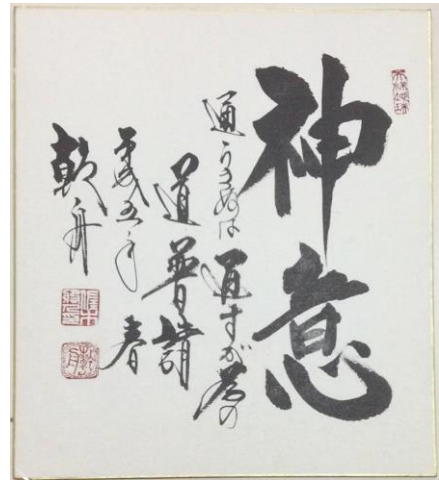 神意
通さぬは通すが為の
道普請
平成五年春
乾舟